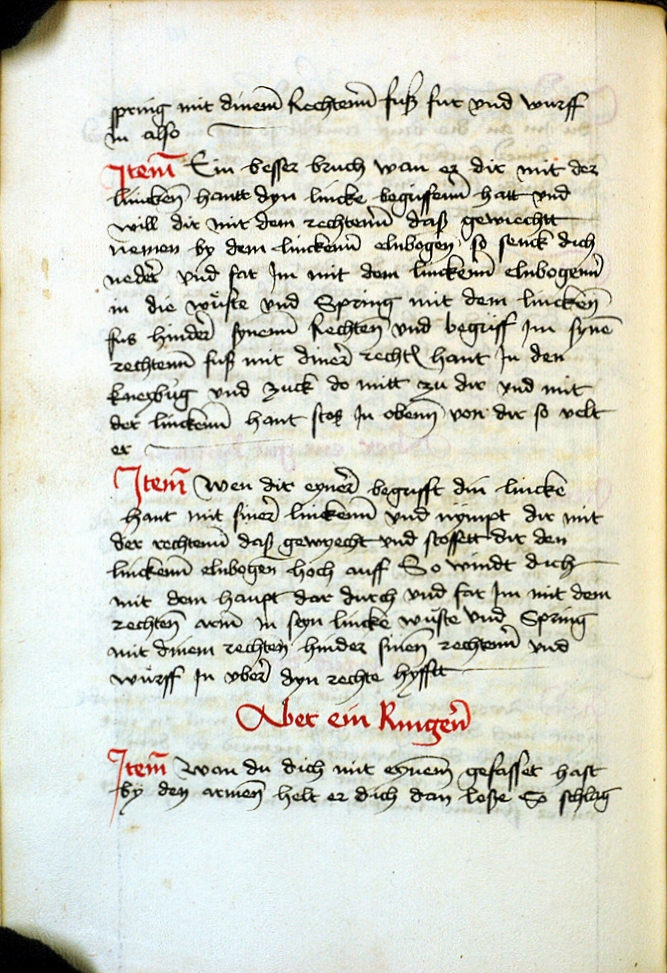 spring mit dinem̄ Rechtem̄ fuß fur vnd wurff
in also
Item̄ Ein besser bruch wan er dir mit der
lincken̄ hantt dyn lincke begriffenn̄ hatt vnd
will dir mit dem rechtenn̄ daß gewiechtt
nemen by dem linckenn̄ elnbogen so senck dich
neder̄ vnd far Im mit dem linckenn̄ elnbogenn̄
in die wüste vnd Spring mit dem lincken̄
fus hinder̄ synenn̄ Rechten̄ vnd begriff im synē
rechtenn̄ fuß mit diner̄ recht hant In den
kneybüg vnd zuck do mitt zu dir vnd mit
der linckenn̄ hant stos In oben̄ von dir so velt
er
Item̄ Wen dir eyner̄ begrifft din lincke
hant mit siner̄ linckenn̄ vnd nympt dir mit
der rechtenn̄ daß gewyecht vnd stossett dir den
linckenn̄ elnbogen̄ hoch auff So windt dich
mit dem haupt dar durch vnd far Im mit dem
rechten̄ arm̄ in seyn lincke wüste vnd Spring
mit dinem rechten̄ hinder sinen̄ rechtenn̄ vnd
würff In vber̄ dyn rechte hyfftt
Aber ein Ringen̄
Item̄ Wan du dich mit eynem̄ gefasset hast
by den armen̄ helt er dich dan loße So schlag